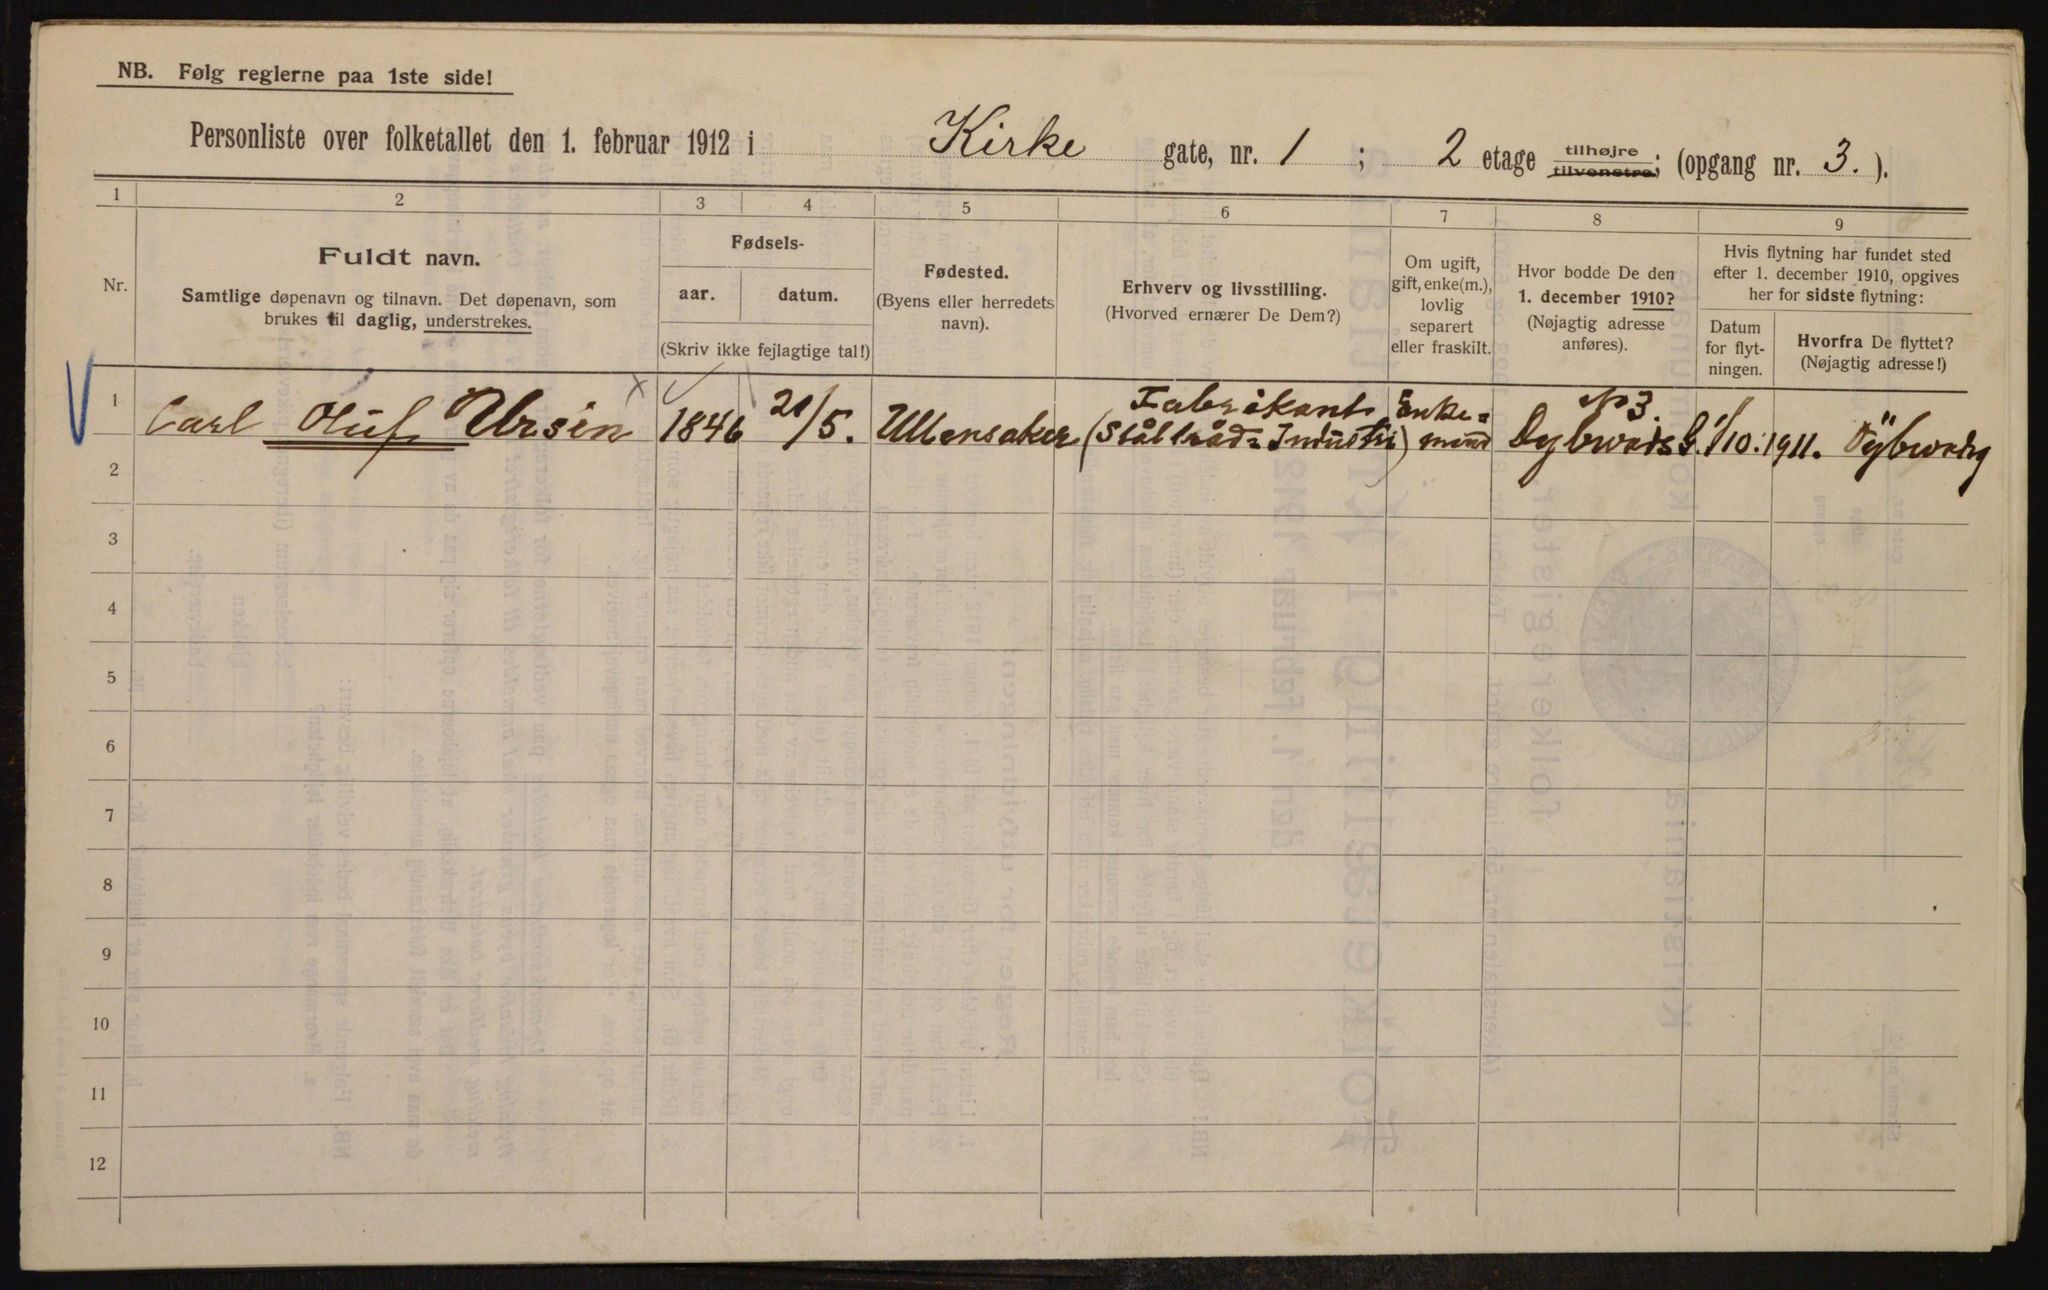 NB. Følg reglerne paa 1ste side!
Personliste over folketallet den 1. februar 1912 i Kirke gate, nr. 1 ; 2 etage tilhøjre tilvenstre; (opgang nr. 3.).
1 2 3 4 5 6 7 8 9
Nr.
Fuldt navn.
Samtlige døpenavn og tilnavn. Det døpenavn, som
brukes til daglig, understrekes.
Fødsels-
aar. datum.
(Skriv ikke fejlagtige tal!)
Fødested.
(Byens eller herredets
navn).
Erhverv og livsstilling.
(Hvorved ernærer De Dem?)
Om ugift,
gift, enke(m.),
lovlig
separert
eller fraskilt.
Hvor bodde De den
1. december 1910?
(Nøjagtig adresse
anføres).
Hvis flytning har fundet sted
efter 1. december 1910, opgives
her for sidste flytning:
Datum
for flyt-
ningen.
Hvorfra De flyttet?
(Nøjagtig adresse!)
Fabrikant Enke= No 3.
1 Carl Oluf Ursin 1846 21/5. Ullensaker (Ståltråd= Industri) mand Dybwads G. 1/10. 1911. Dybwadsg
2
3
4
5
6
7
8
9
10
11
12